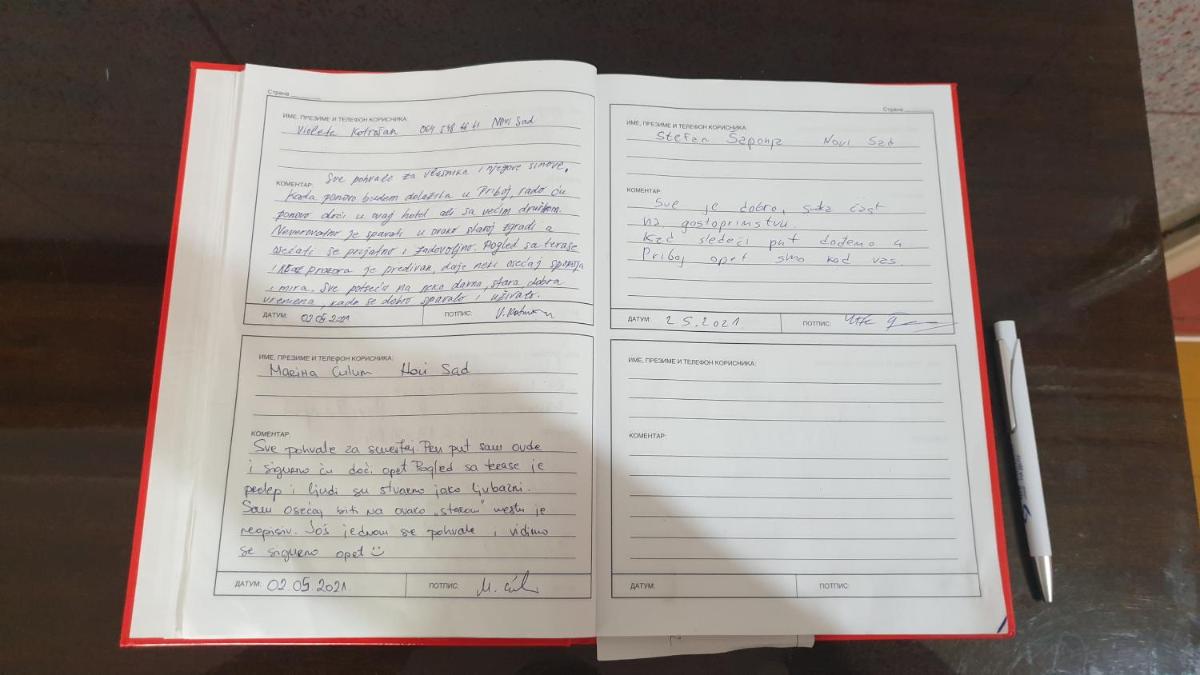 Страна
ИМЕ, ПРЕЗИМЕ И ТЕЛЕФОН КОРИСНИКА:
Violeta Kotrošan Novi Sad
Sve pohvale za vlasnika i njegove sinove.
КОМЕНТАР:
Kada ponovo budem dolazila u Priboj, rado ću
ponovo doći u ovaj hotel ali sa većim društvom.
Neverovatno je spavati u ovako staroj zgradi a
osećati se prijatno i zadovoljno. Pogled sa terase
i kroz prozora je predivan, daje neki osećaj spokoja
i mira. Sve potseća na neka davna, stara dobra
vremena, kada se dobro spavalo i uživalo.
ДАТУМ: 02.05.2021
ПОТПИС:
ИМЕ, ПРЕЗИМЕ И ТЕЛЕФОН КОРИСНИКА:
Marina Ćulum Novi Sad
КОМЕНТАР:
Sve pohvale za smeštaj Prvi put sam ovde
i sigurno ću doći opet Pogled sa terase je
prelep i ljudi su stvarno jako ljubazni.
Sam osećaj biti na ovako „starom" mestu je
neopisiv. Još jednom sve pohvale i vidimo
se sigurno opet ☺
ДАТУМ: 02.05.2021
ПОТПИС:
Страна
ИМЕ, ПРЕЗИМЕ И ТЕЛЕФОН КОРИСНИКА:
Stefan Šaponja Novi Sad
КОМЕНТАР:
Sve je dobro, svaka čast
na gostoprimstvu.
Kad sledeći put dođemo u
Priboj opet smo kod vas.
ДАТУМ: 2.5.2021
ПОТПИС:
ИМЕ, ПРЕЗИМЕ И ТЕЛЕФОН КОРИСНИКА:
КОМЕНТАР:
ДАТУМ:
ПОТПИС: